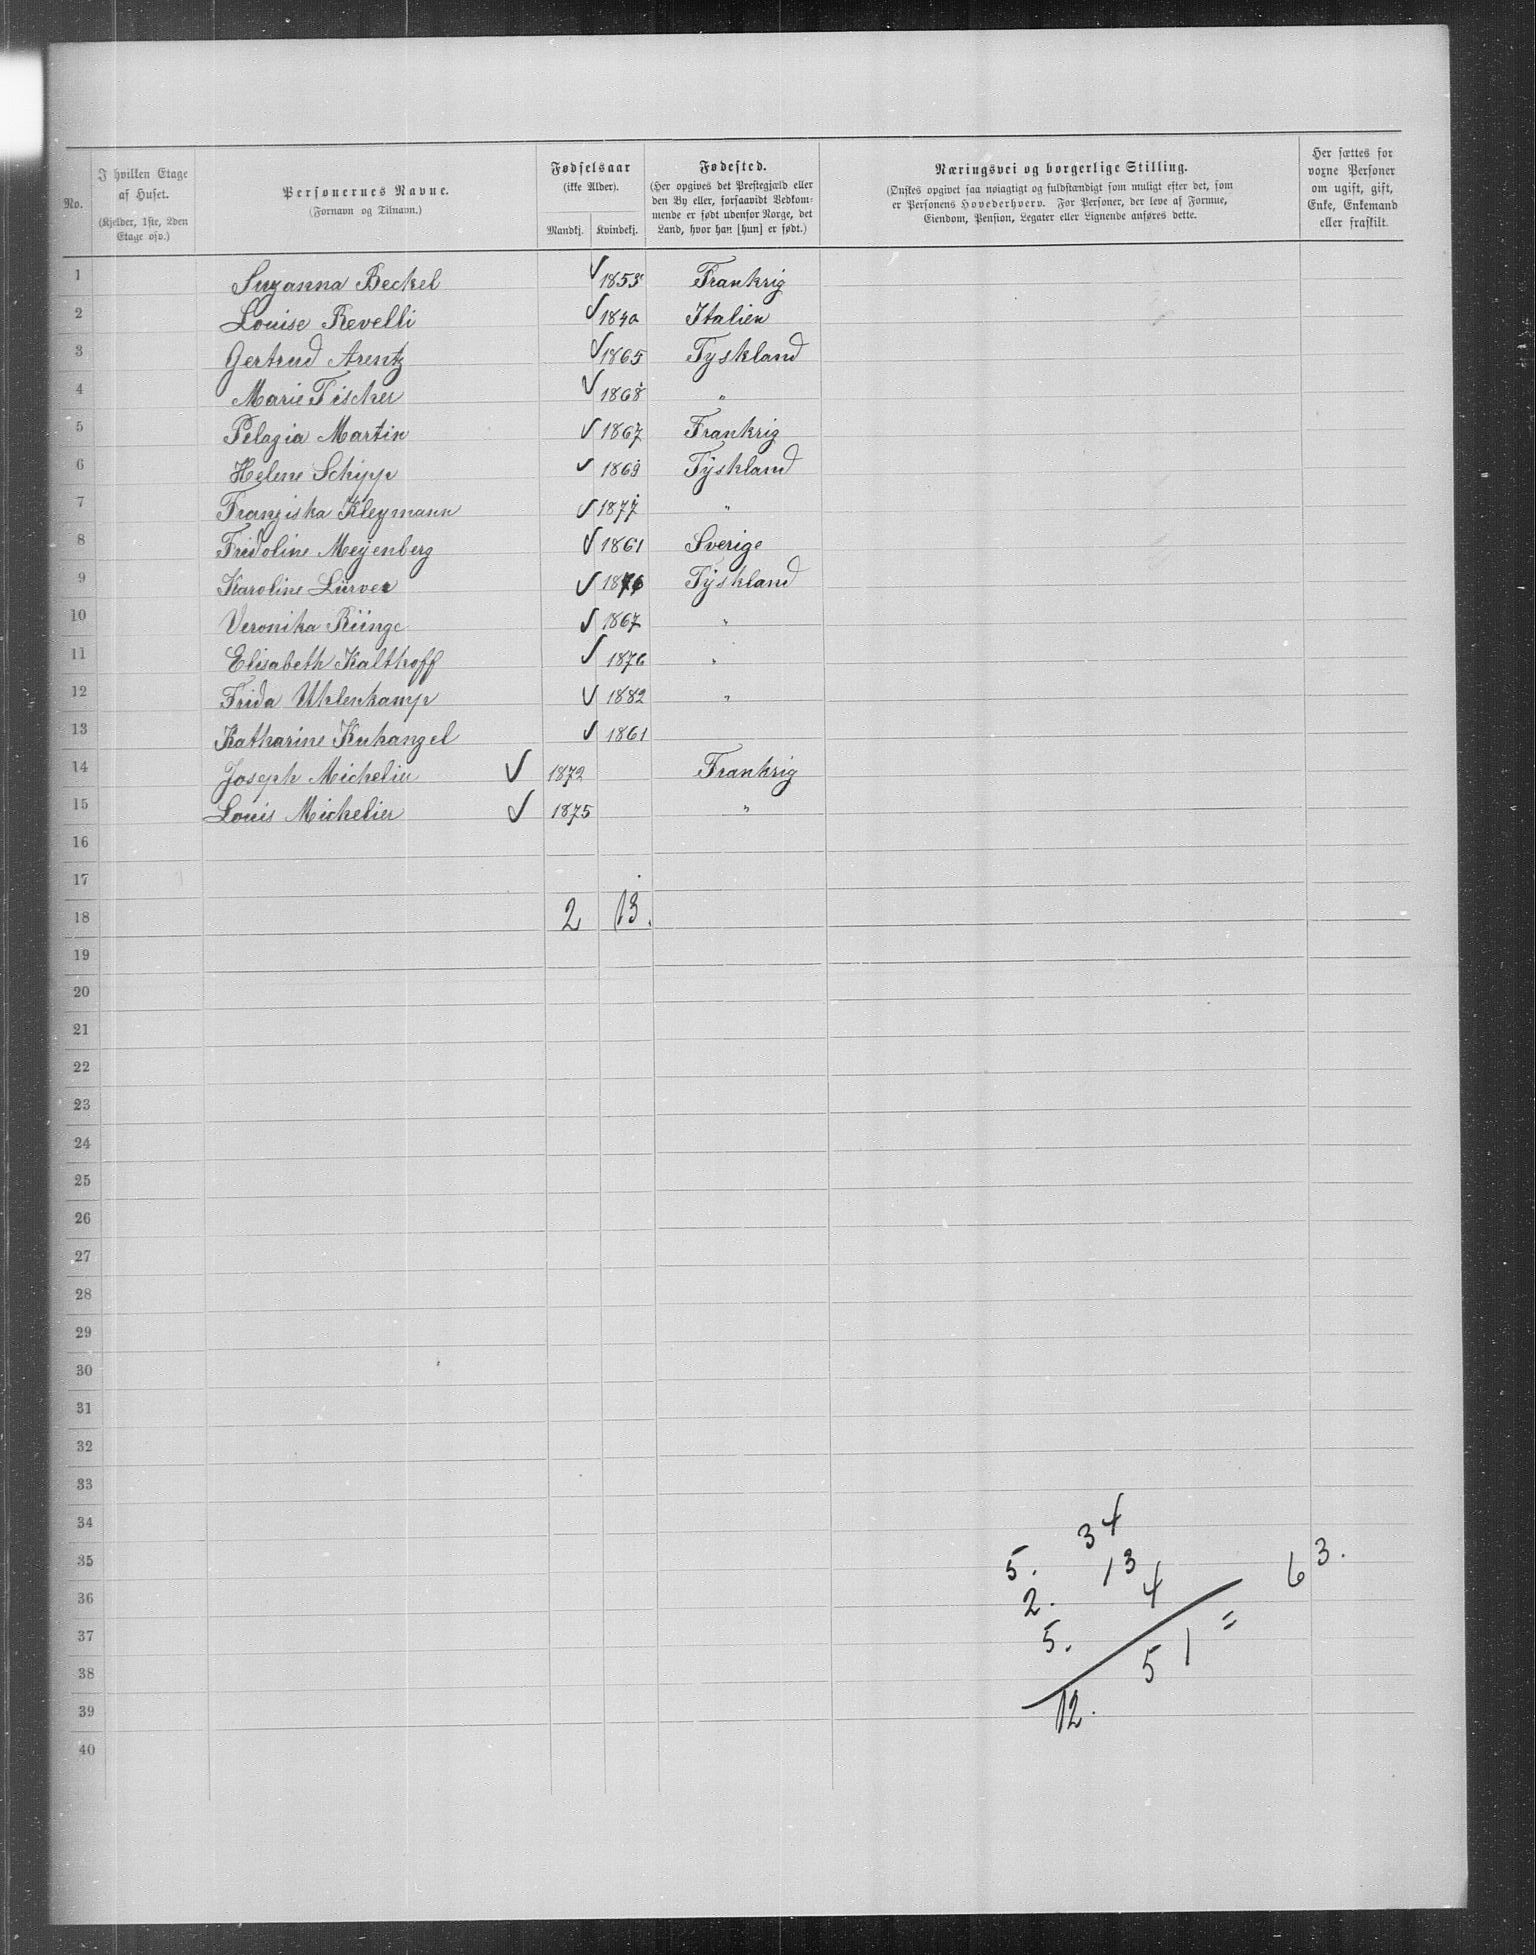 No.
I hvilken Etage
af Huset.
(Kjelder, 1ste, 2den
Etage osv.)
Personernes Navne.
(Fornavn og Tilnavn.)
Fødselsaar
(ikke Alder).
Mandkj. Kvindekj.
Fødested.
(Her opgives det Prestegjæld eller
den By eller, forsaavidt Vedkom-
mende er født udenfor Norge, det
Land, hvor han [hun] er født.)
Næringsvei og borgerlige Stilling.
(Ønskes opgivet saa nøiagtigt og fuldstændigt som muligt efter det, som
er Personens Hovederhverv. For Personer, der leve af Formue,
Eiendom, Pension, Legater eller Lignende anføres dette.
Her sættes for
voxne Personer
om ugift, gift,
Enke, Enkemand
eller fraskilt.
1 Suzanna Beckel ✓ 1853 Frankrig
2 Louise Revelli ✓ 1840 Italien
3 Gertrud Arentz ✓ 1865 Tyskland
4 Marie Fischer ✓ 1868 "
5 Pelagia Martin ✓ 1867 Frankrig
6 Helene Schipp ✓ 1869 Tyskland
7 Franziska Kleymann ✓ 1877 "
8 Fridoline Meyenberg ✓ 1861 Sverige
9 Karoline Lürver ✓ 1876 Tyskland
10 Veronika Rünge ✓ 1867 "
11 Elisabeth Kalthoff ✓ 1876 "
12 Frida Uhlenkamp ✓ 1882 "
13 Katharine Kuhangel ✓ 1861
14 Joseph Michelier ✓ 1872 Frankrig
15 Louis Michelier ✓ 1875 "
16
17
18 2 13.
19
20
21
22
23
24
25
26
27
28
29
30
31
32
33
34 34
35 5. 13 63.
36 2. 4
37 5. 51 =
38
39 12.
40